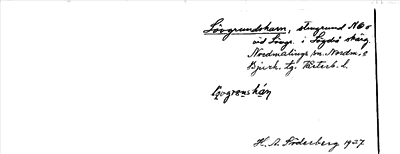 Lövgrundsharn, stengrund N.O. o
vid Lövgr. i Lögdö skärg.
Nordmalings sn. Nordm. o
Bjurh. tg. Västerb. l.
Lövgronshán
H. A. Söderberg 1927